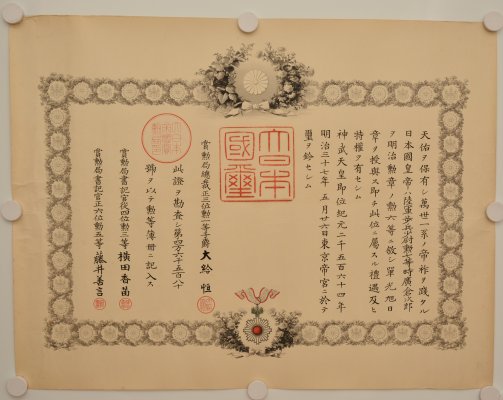 天佑ヲ保有シ萬世一系ノ帝祚ヲ踐タル
日本國皇帝ハ陸軍歩兵少尉勲七等時廣倉次郎
ヲ明治勲章ノ勲六等ニ敍シ單光旭日
章ヲ授與ス即チ此位ニ屬スル禮遇及ヒ
特權ヲ有セシム
神武天皇即位紀元二千五百六十四年
明治三十七年五月廿六日東京帝宮ニ於テ
璽ヲ鈐セシム
大日本
國璽
賞勲局總裁正三位勲一等子爵大給恒
此證ヲ勘査シ第四万六千五百八十
號ヲ以テ勲等簿冊ニ記入ス
賞勲局書記官從四位勲三等横田香苗
賞勲局書記官正六位勲五等藤井善言